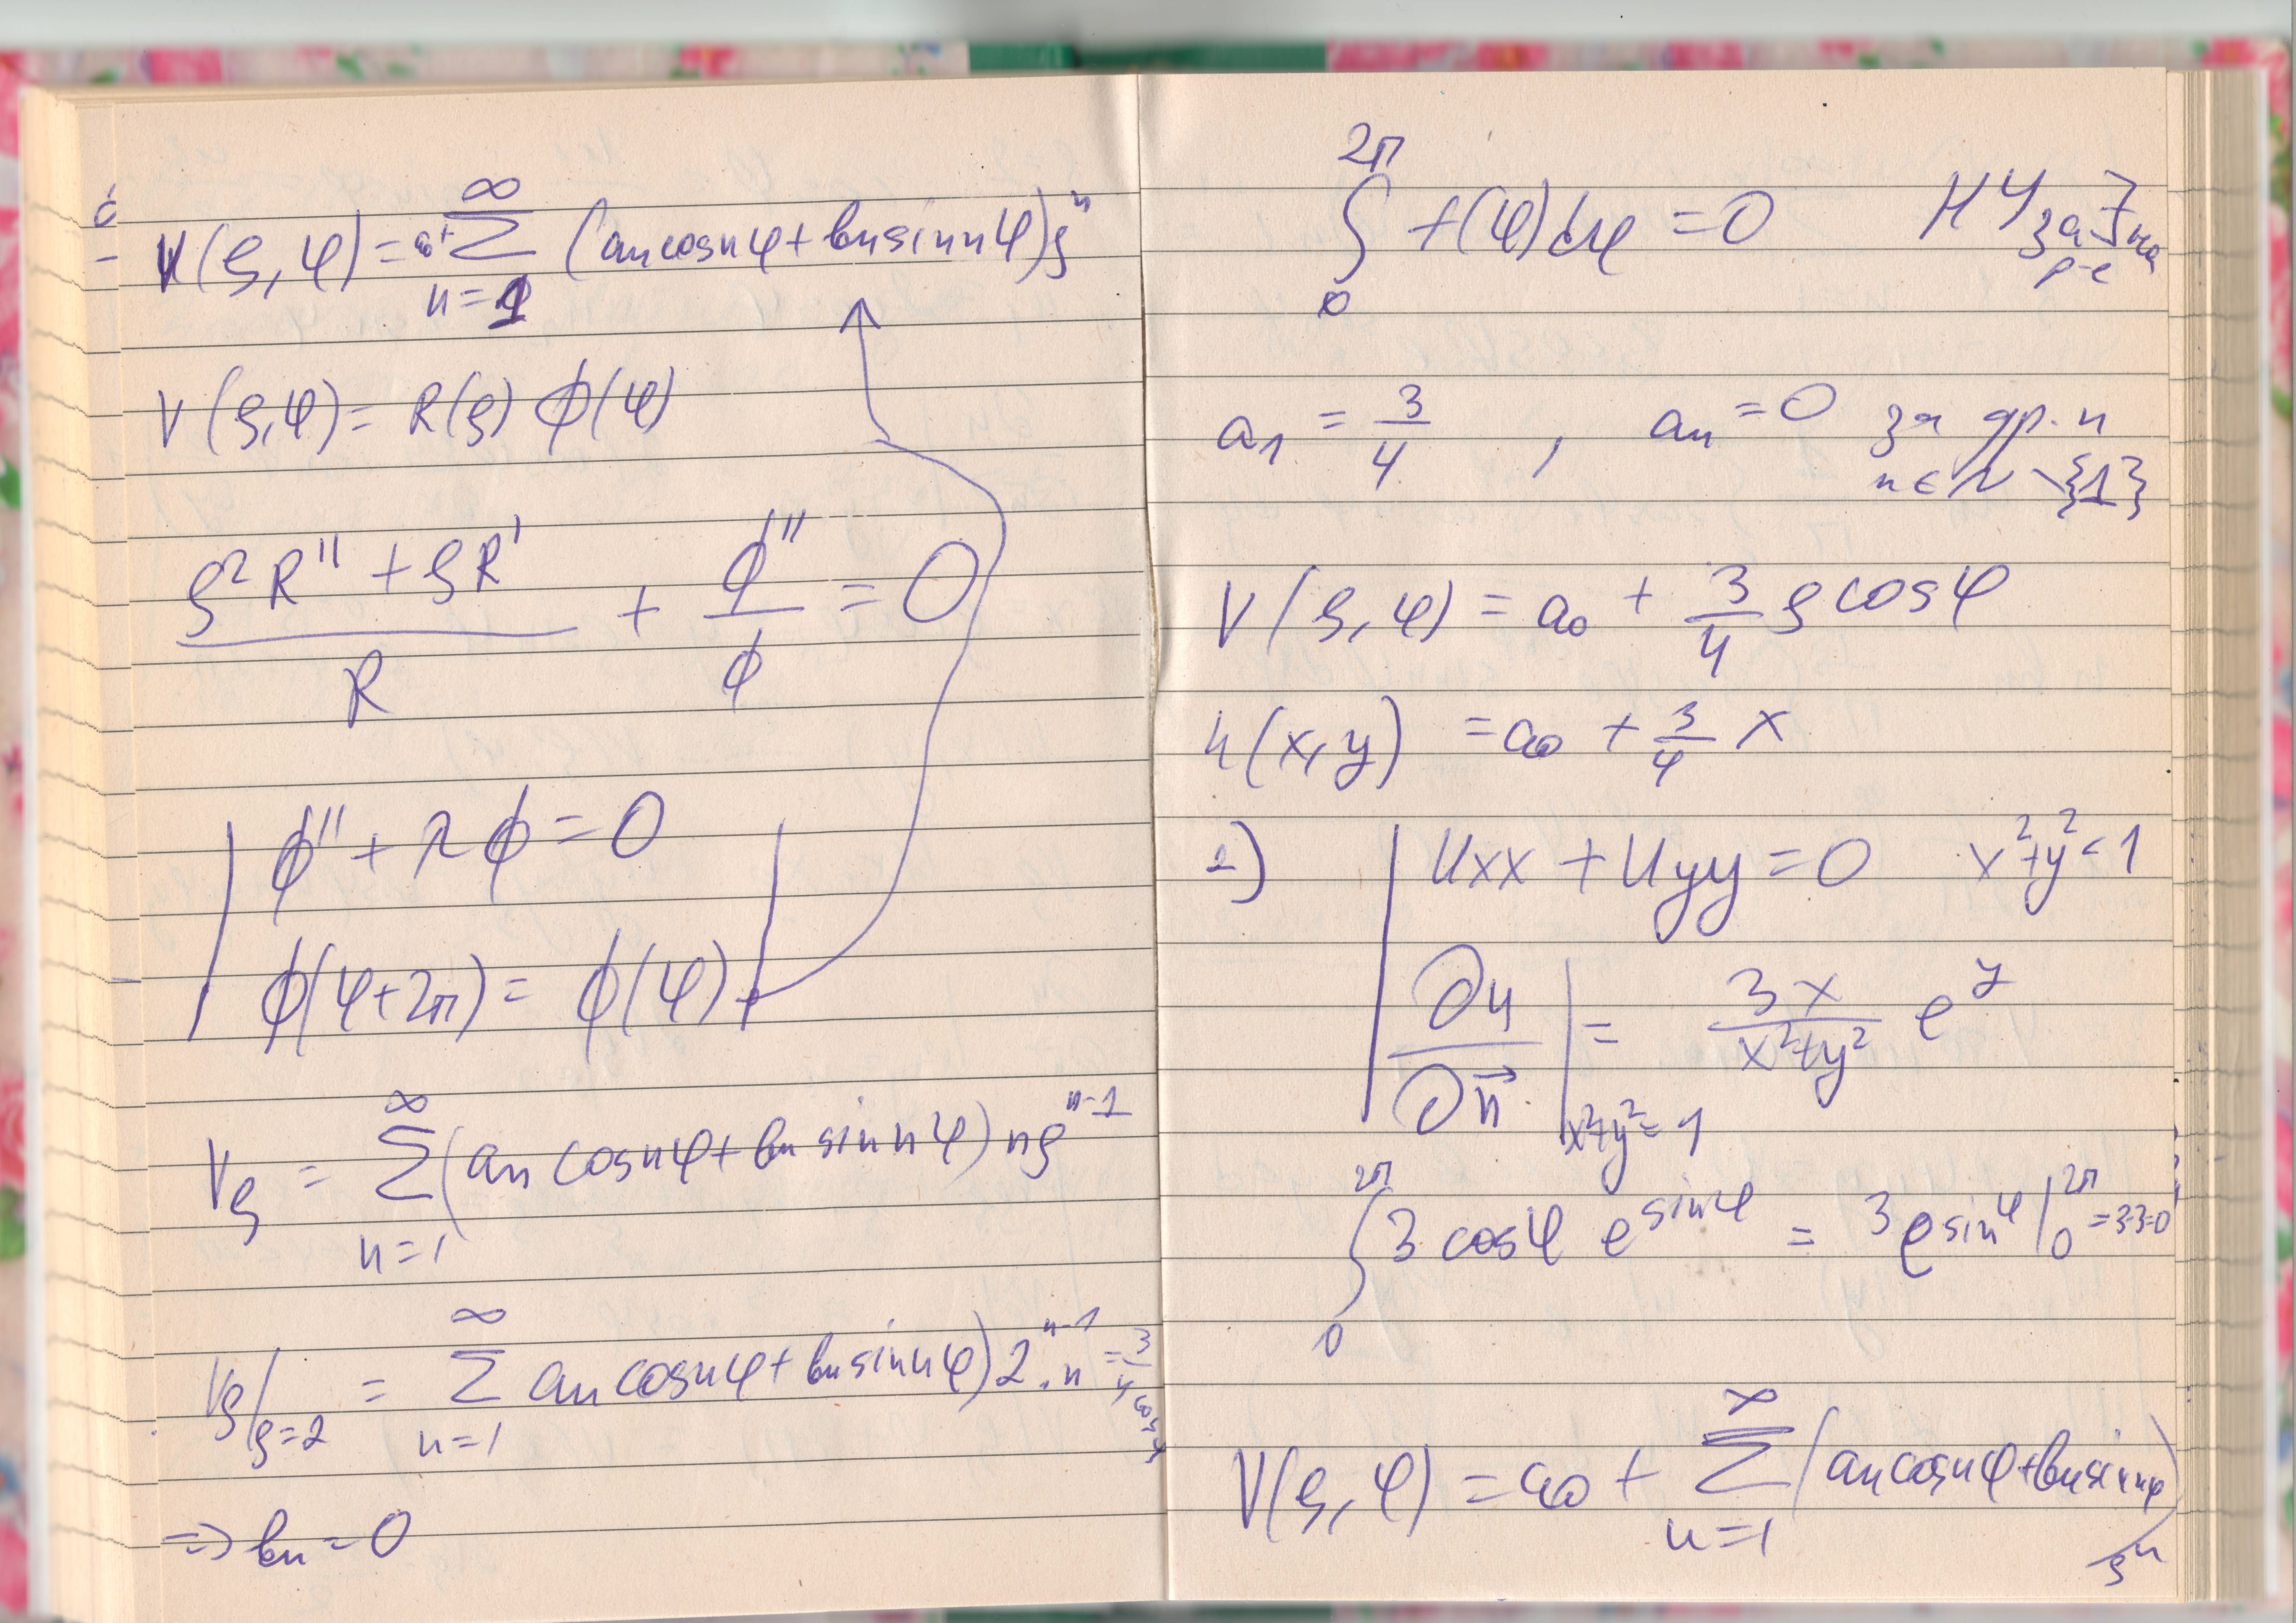 V(ρ,φ) = a₀ + ∑_{n=1}^{∞} (aₙ cos nφ + bₙ sin nφ) ρⁿ
V(ρ,φ) = R(ρ) Φ(φ)
(ρ²R'' + ρR')/R + Φ''/Φ = 0
Φ'' + λΦ = 0
Φ(φ+2π) = Φ(φ)
V_ρ = ∑_{n=1}^{∞} (aₙ cos nφ + bₙ sin nφ) nρ^{n-1}
V_ρ|_{ρ=2} = ∑_{n=1}^{∞} aₙ cos nφ + bₙ sin nφ) 2^{n-1}.n = 3/4 cos φ
=> bₙ = 0
∫_0^{2π} f(φ)dφ = 0 НУ за ∃ на р-е
a₁ = 3/4 , aₙ = 0 за др. n
n ∈ N \ {1}
V(ρ,φ) = a₀ + 3/4 ρ cos φ
u(x,y) = a₀ + 3/4 x
2) | u_xx + u_yy = 0 x²+y² < 1
∂u/∂n⃗ |_{x²+y²=1} = 3x/(x²+y²) e^y
∫_0^{2π} 3 cos φ e^{sin φ} = 3 e^{sin φ} |_0^{2π} = 3-3=0
V(ρ,φ) = a₀ + ∑_{n=1}^{∞} (aₙ cos nφ + bₙ sin nφ)
ρⁿ